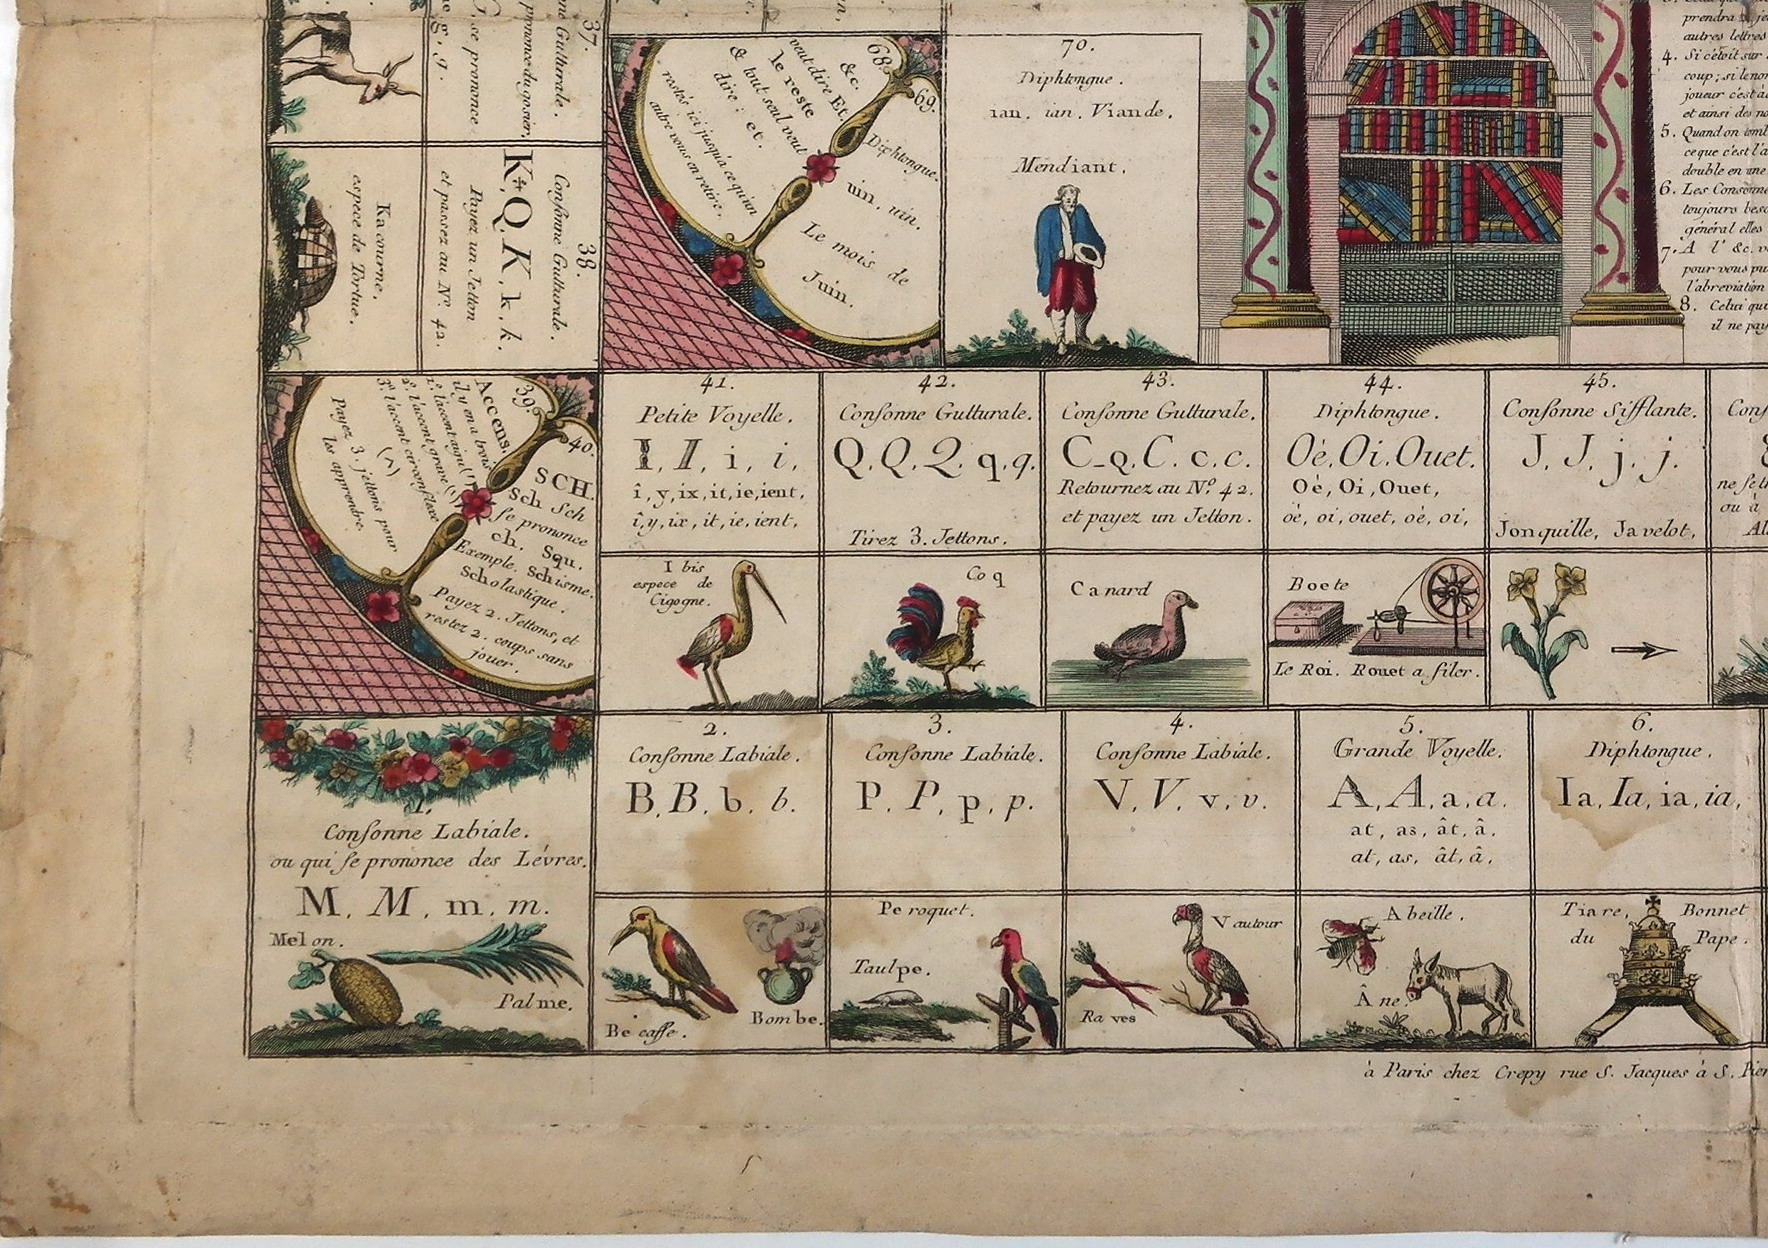 37.
prononce du gosier.
se prononce
38.
Consonne Gutturale.
K, Q, K, k, k.
Payez un Jetton
et passez au N.º 42.
Kacourne,
espece de Tortue.
68.
&c.
veut dire Et
le reste
& tout seul veut
dire : et.
restés ici jusqu'à ce qu'un
autre vous en retire.
69.
Diphtongue.
uin, uin.
Le mois de
Juin.
70.
Diphtongue.
ian, ian, Viande,
Mendiant.
prendra
autres lettres
4. Si c'étoit sur
coup; si le nom
joueur c'est à
et ainsi des
5. Quand on
ce que c'est
double en une
6. Les Consonne
toujours
général elles
7. A l' &c.
pour vous
l'abreviation
8. Celui qui
il ne
39.
Accens.
il y en a trois
1.º l'accent aigu (´)
2.º l'accent grave (`)
3.º l'accent circonflexe
(^)
Payez 3. jettons pour
les apprendre.
40.
SCH.
Sch Sch
se prononce
ch. Squ.
Exemple. Schisme.
Scholastique.
Payez 2. Jettons, et
restez 2. coups sans
jouer.
41.
Petite Voyelle.
I, I, i, i,
î, y, ix, it, ie, ient,
î, y, ix, it, ie, ient,
Ibis
espece de
Cigogne.
42.
Consonne Gutturale.
Q, Q, Q, q, q.
Tirez 3. Jettons.
Coq
43.
Consonne Gutturale.
C-Q, C, c, c.
Retournez au N.º 42.
et payez un Jetton.
Canard
44.
Diphtongue.
Oè, Oi, Ouet.
Oè, Oi, Ouet,
oè, oi, ouet, oè, oi,
Boete
Le Roi. Rouet a filer.
45.
Consonne Sifflante.
J, J, j, j.
Jonquille, Javelot,
1.
Consonne Labiale.
ou qui se prononce des Lévres.
M, M, m, m.
Melon.
Palme.
2.
Consonne Labiale.
B, B, b, b.
Becaffe.
Bombe.
3.
Consonne Labiale.
P, P, p, p.
Peroquet.
Taulpe.
4.
Consonne Labiale.
V, V, v, v.
Vautour
Raves
5.
Grande Voyelle.
A, A, a, a.
at, as, ât, â,
at, as, ât, â,
Abeille.
Âne.
6.
Diphtongue.
Ia, Ia, ia, ia,
Tiare, Bonnet
du Pape.
à Paris chez Crepy rue S. Jacques à S.